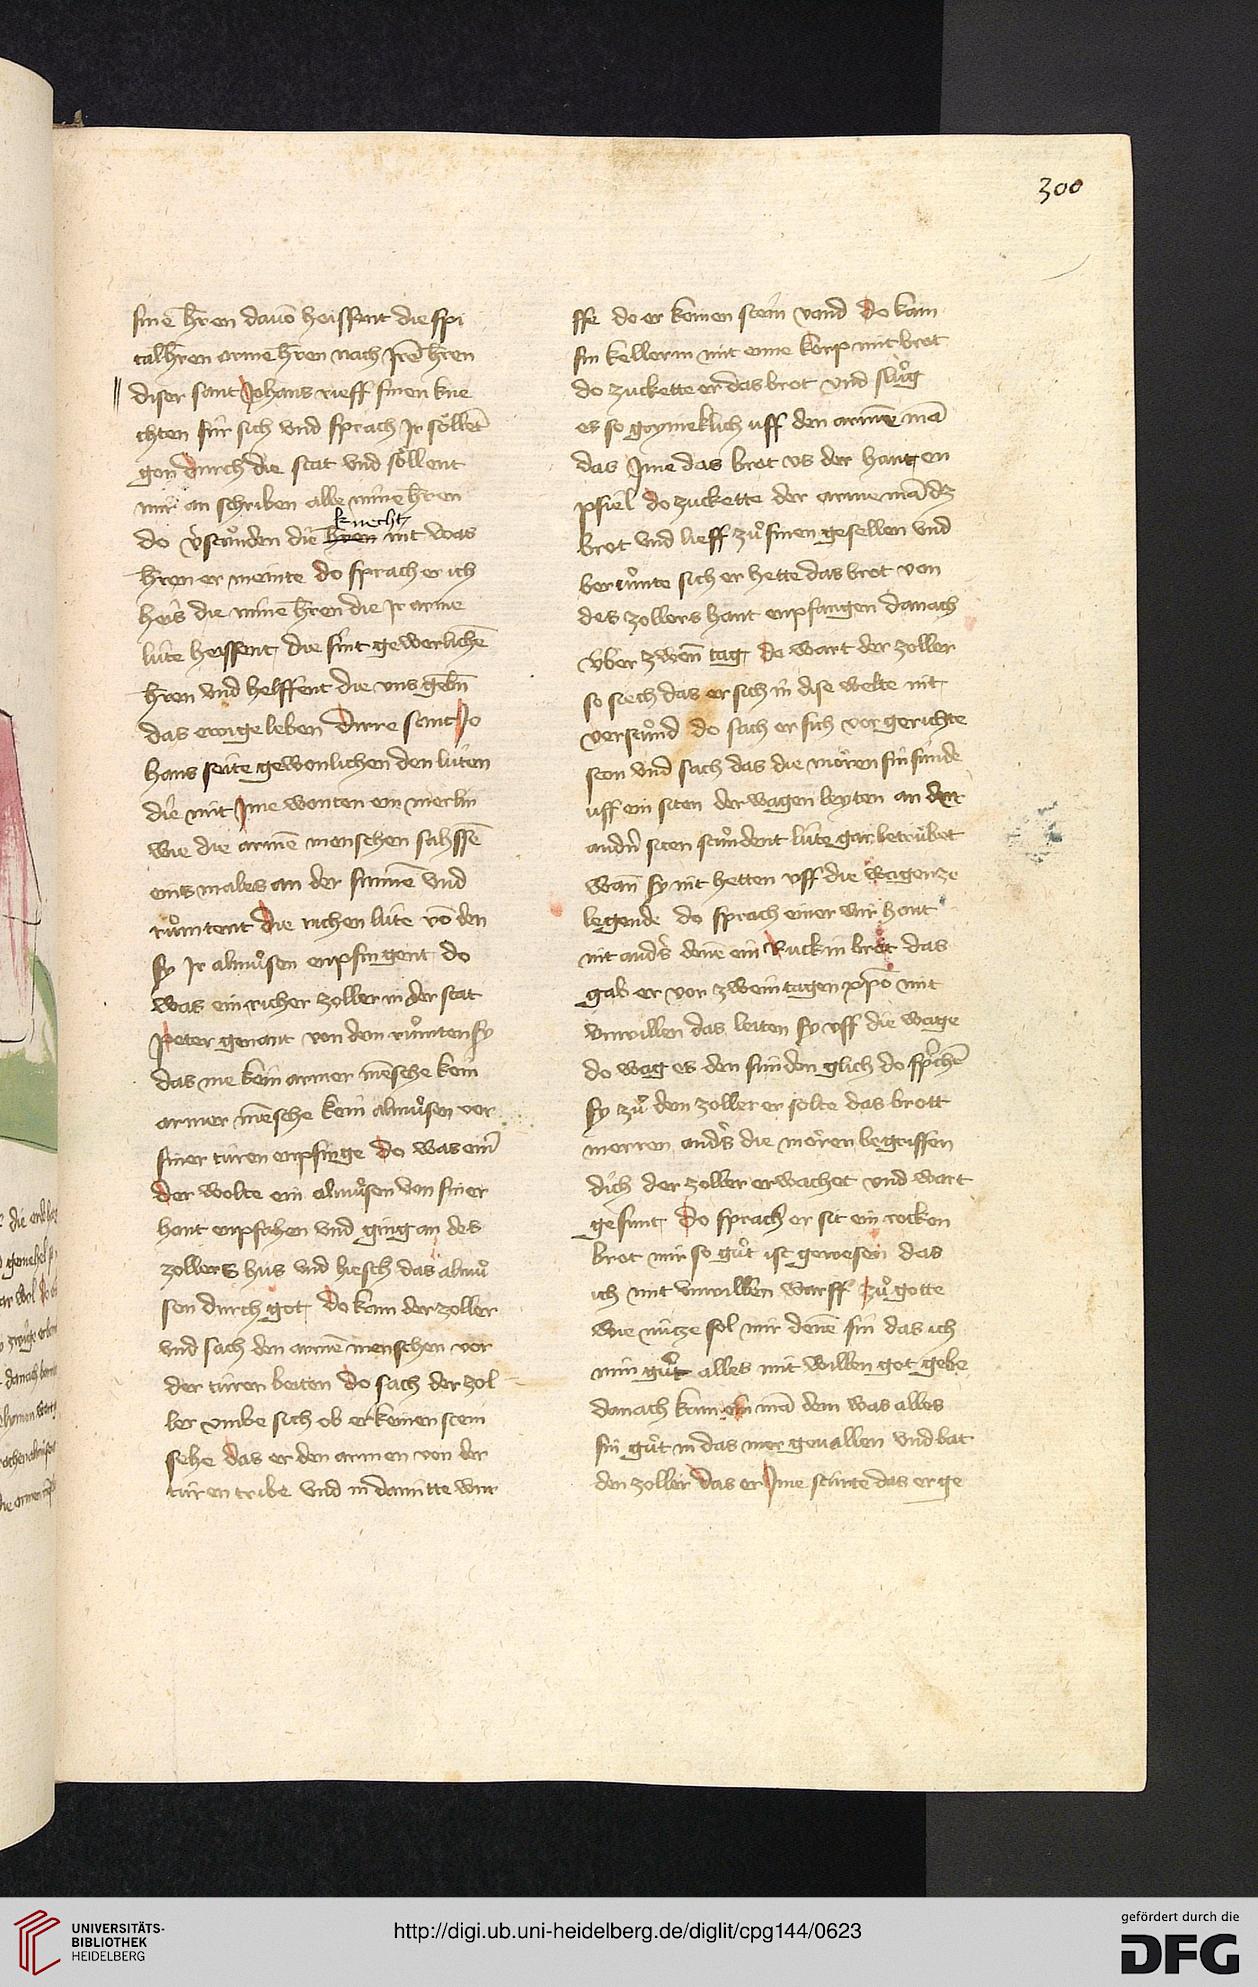 300
sine h̄ren dauō heissent die spi
talh̄ren arme h̄ren nach Jrē h̄ren
diser sant Johans rieff sinen kne
chten für sich vnd sprach Jr söllēt
gon durch die stat vnd söllent
mir an schriben alle mine h̄ren
knecht
do v̾stůnden die h̄ren nit was
h̄ren er meinte do sprach er ich
heis die mine h̄ren die Jr arme
lüte heissent, die sint gewerlichē
h̄ren vnd helffent die vns gebn̄
das ewige leben Dirre sant Jo
hans seite gewonlichen den lüten
die mit Jme wonten ein merlin
wie die armē menschen sahssē
eins males an der sunnē vnd
růmtent die richen lüte vō den
sy Jr almůsen enpfingent do
was ein richer zoller in der stat
peter genant von dem růmten sy
das nie kein armer mēsche kein
armer mēsche kein almůsen vor
siner türen enpfinge do was ein̄
der wolte ein almůsen von siner
hant enpfahen vnd ging an des
zollers hus vnd hiesch das almů
sen durch got, do kam der zoller
vnd sach den armē menschen vor
der türen beiten do sach der zol
ler vmbe sich ob er keinen stein
sehe das er den armen von der
türen tribe vnd in damitte wur
ffe do er keinen stein vand do kam
sin kellerin mit eime korp mit brot
do zuckette er das brot vnd slůg
es so grymeklich uff den armē mā
das Jme das brot vs der hant en
pfiel do zuckette der arme mā dz
brot vnd lieff zů sinen gesellen vnd
berůmte sich er hette das brot von
des zollers hant enpfangen danach
über zwen̄ tag, do wart der zoller
so siech das er sich in dise welte nit,
verstůnd do sach er sich vor gerichte
ston vnd sach das die mören sin sünde
uff ein siten der wagen leyten an der
andn̄ siten stůndent lüte gar betrübet
wan̄ sy nit hetten vff die wagen ze
legende do sprach einer wir hant
nit anders denē ein Ruckin brot das
gab er vor zwein tagen xp̄o mit
vnwillen das leiten sy vff die wage
do wag es den sünden glich do sprchē
sy zů dem zoller er solte das brott
merren anders die mören begriffen
dich der zoller erwachet vnd wart
gesunt, do sprach er sit ein rocken
brot mir so gůt ist gewesen das
ich mit vnwillen warff zů gotte
wie nütze sol mir denē sin das ich
min gůt alles mit willen got gebe
danach kam ein mā dem was alles
sin gůt in das mer geuallen vnd bat
den zoller das er Jme stürte das er ge
UNIVERSITÄTS-
BIBLIOTHEK
HEIDELBERG
http://digi.ub.uni-heidelberg.de/diglit/cpg144/0623
gefördert durch die
DFG